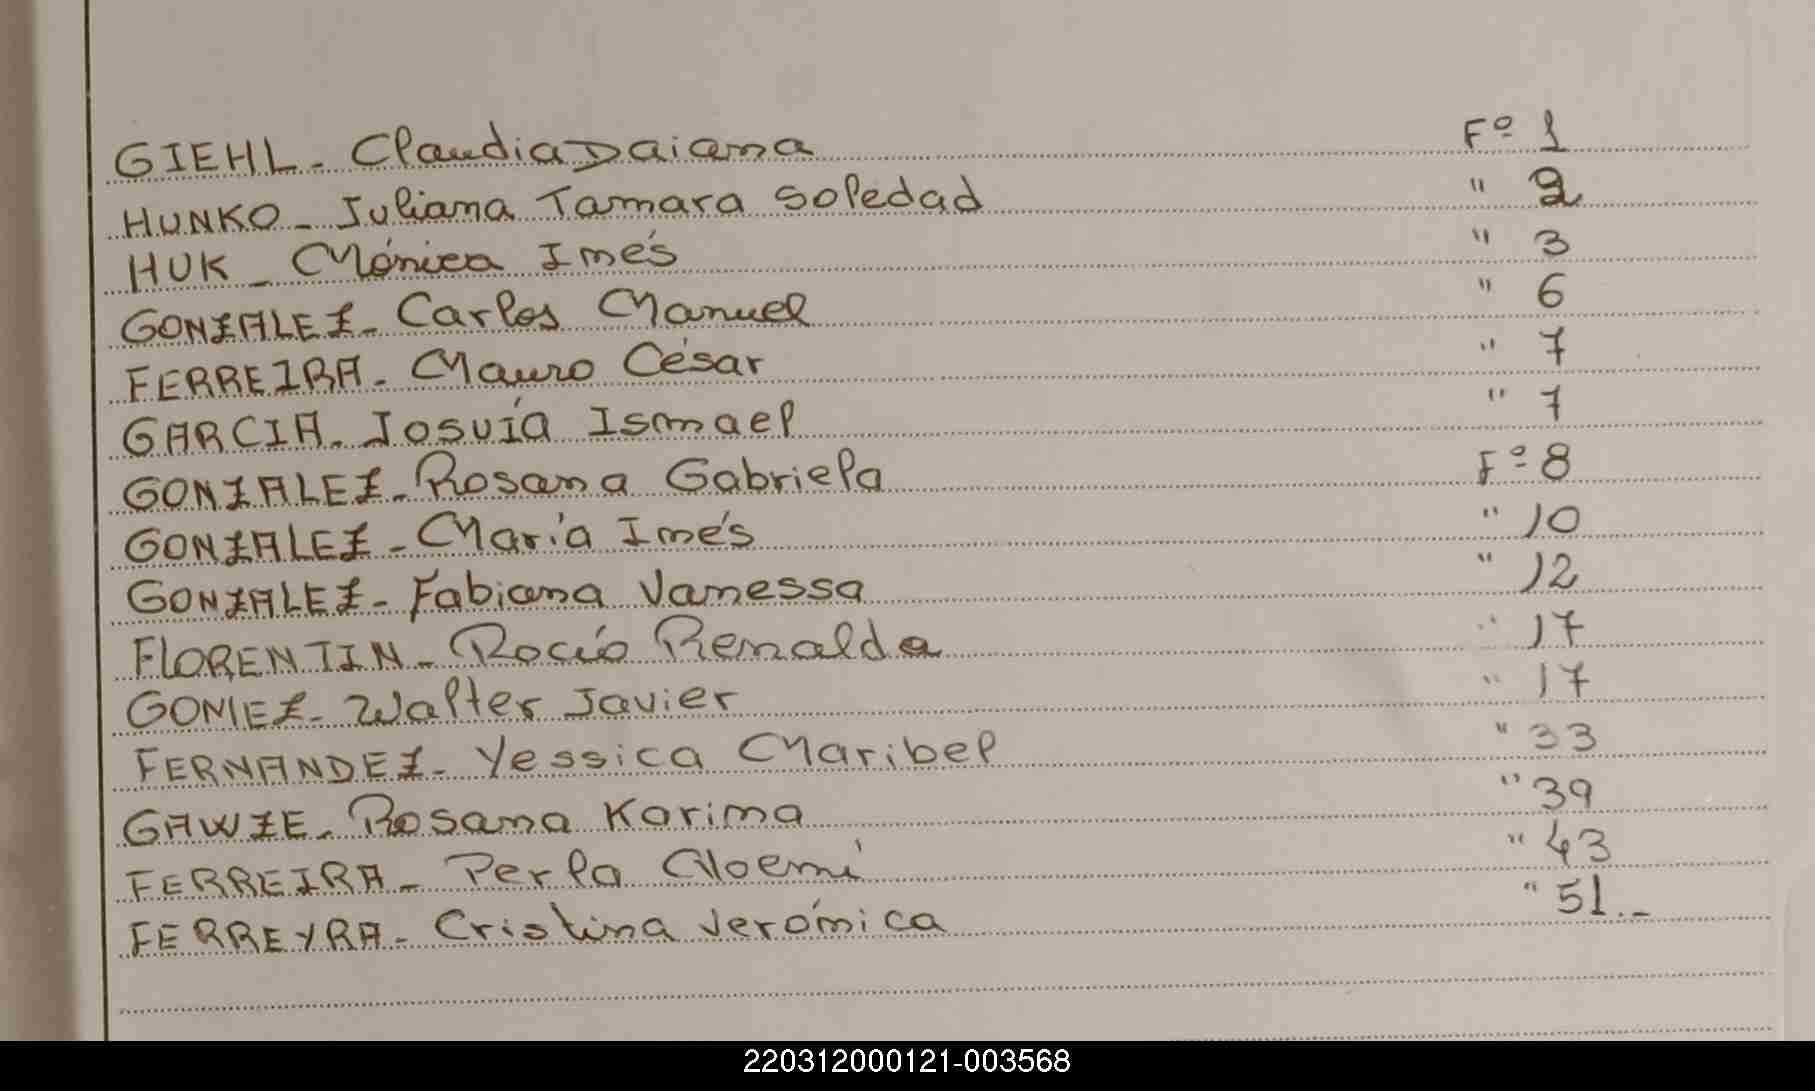 GIEHL - Claudia Daiana Fº 1
HUNKO - Juliana Tamara Soledad " 2
HUK - Mónica Inés " 3
GONZALEZ - Carlos Manuel " 6
FERREIRA - Mauro César " 7
GARCIA - Josuía Ismael " 7
GONZALEZ - Rosana Gabriela Fº 8
GONZALEZ - María Inés " 10
GONZALEZ - Fabiana Vanessa " 12
FLORENTIN - Rocío Renalda " 17
GOMEZ - Walter Javier " 17
FERNANDEZ - Yessica Maribel " 33
GAWZE - Rosana Karina " 39
FERREIRA - Perla Noemí " 43
FERREYRA - Cristina Verónica " 51.-
220312000121-003568